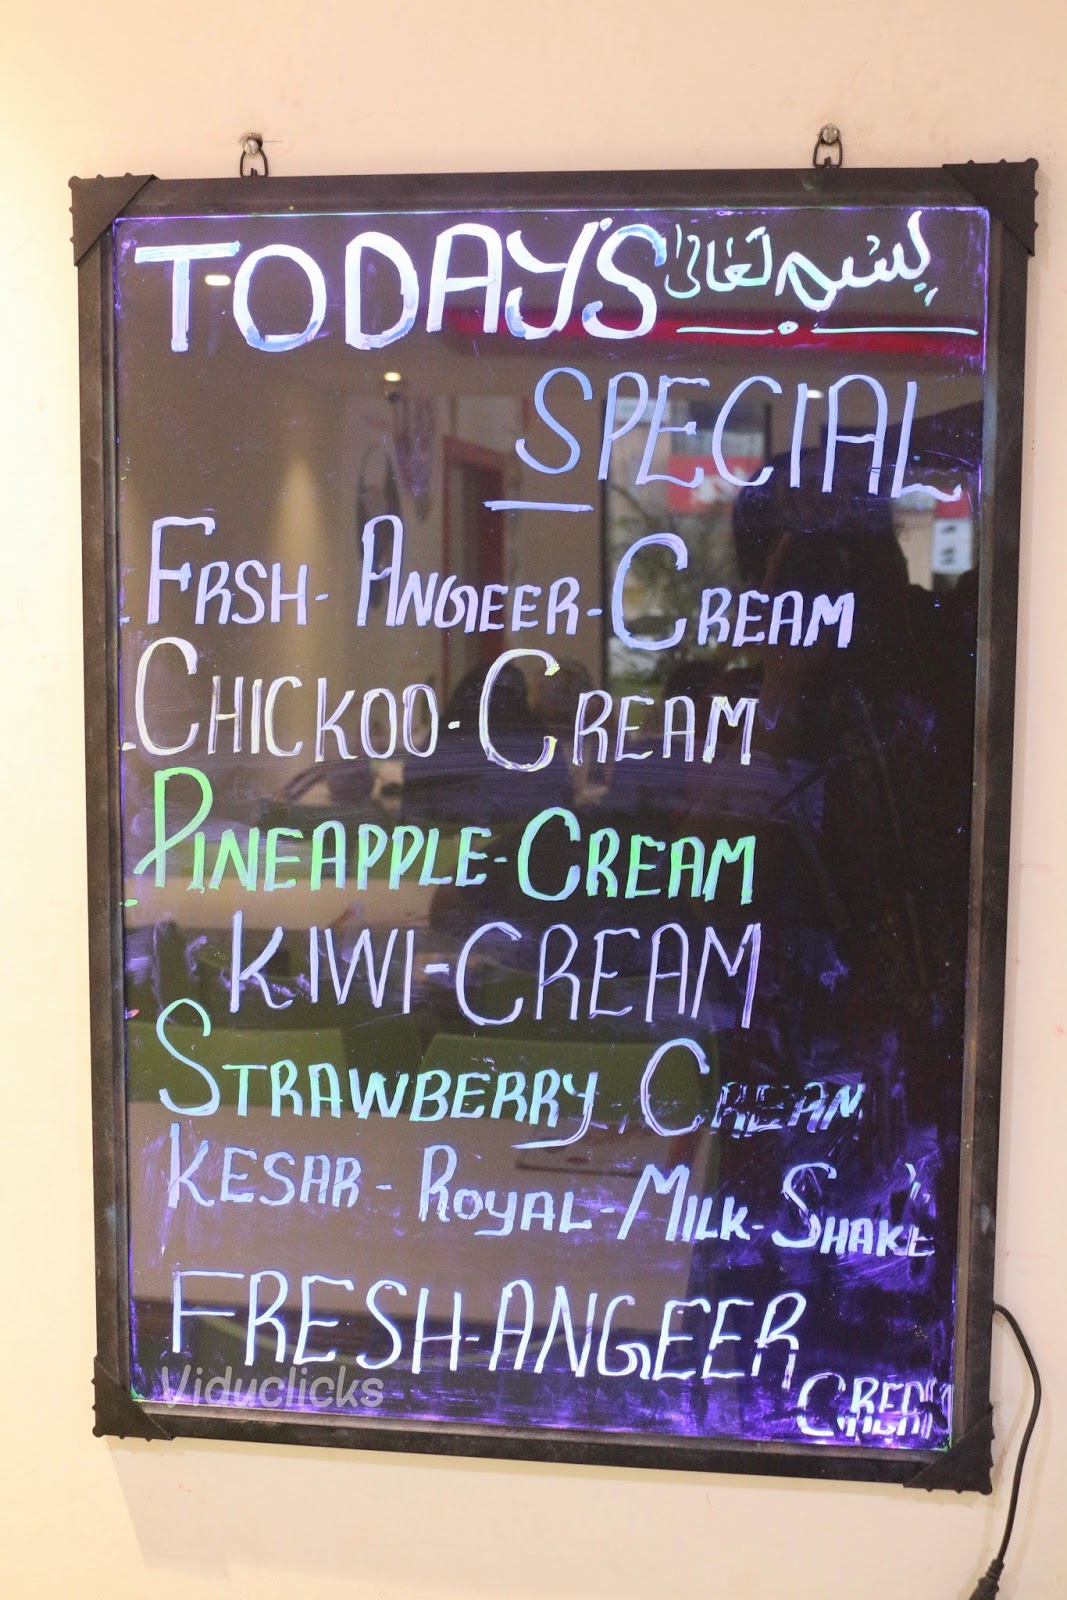 TODAY'S بسمہ تعالیٰ
SPECIAL
FRSH- ANGEER-CREAM
CHICKOO-CREAM
PINEAPPLE-CREAM
KIWI-CREAM
STRAWBERRY CREAM
KESAR-ROYAL-MILK-SHAKE
FRESH-ANGEER
CREAM
Viduclicks